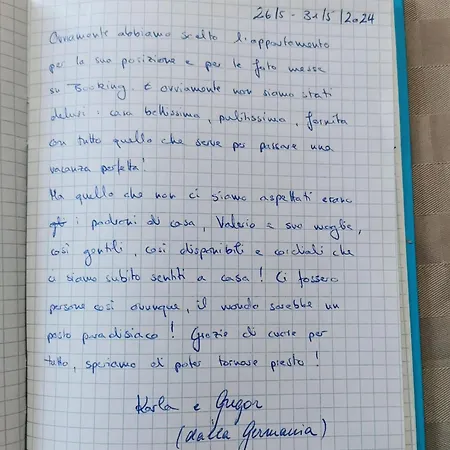 26/5 - 31/5/2024
Ovviamente abbiamo scelto l'appartamento
per la sua posizione e per le foto messe
su Booking. E ovviamente non siamo stati
delusi: casa bellissima, pulitissima, fornita
con tutto quello che serve per passare una
vacanza perfetta!
Ma quello che non ci siamo aspettati erano
i padroni di casa, Valerio e sua moglie,
così gentili, così disponibili e cordiali che
ci siamo subito sentiti a casa! Ci fossero
persone così ovunque, il mondo sarebbe un
posto paradisiaco! Grazie di cuore per
tutto, speriamo di poter tornare presto!
Karla e Gregor
(dalla Germania)